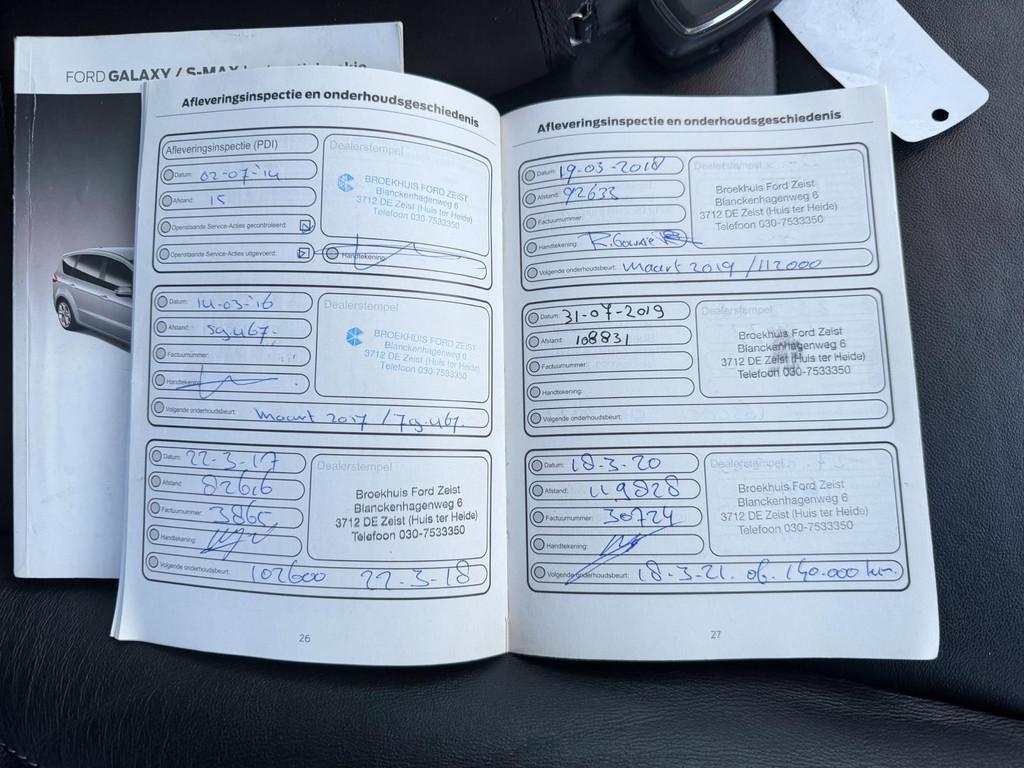 FORD GALAXY / S-MAX
Afleveringsinspectie en onderhoudsgeschiedenis
Afleveringsinspectie (PDI)
Datum: 02-07-'14
Afstand: 15
Openstaande Service-Acties gecontroleerd:
Openstaande Service-Acties uitgevoerd:
Handtekening:
Dealerstempel
BROEKHUIS FORD ZEIST
Blanckenhagenweg 6
3712 DE Zeist (Huis ter Heide)
Telefoon 030-7533350
Datum: 14-03-'16
Afstand: 59.467.
Factuurnummer:
Handtekening:
Volgende onderhoudsbeurt: Maart 2017 / 79.467.
Dealerstempel
BROEKHUIS FORD ZEIST
Blanckenhagenweg 6
3712 DE Zeist (Huis ter Heide)
Telefoon 030-7533350
Datum: 22-3-17
Afstand: 82616
Factuurnummer:
Handtekening:
Volgende onderhoudsbeurt: 102600 22-3-18
Dealerstempel
Broekhuis Ford Zeist
Blanckenhagenweg 6
3712 DE Zeist (Huis ter Heide)
Telefoon 030-7533350
26
Afleveringsinspectie en onderhoudsgeschiedenis
Datum: 19-03-2018
Afstand: 92633
Factuurnummer:
Handtekening:
Volgende onderhoudsbeurt: Maart 2019 / 112000
Dealerstempel
Broekhuis Ford Zeist
Blanckenhagenweg 6
3712 DE Zeist (Huis ter Heide)
Telefoon 030-7533350
Datum: 31-07-2019
Afstand: 108831
Factuurnummer:
Handtekening:
Volgende onderhoudsbeurt:
Dealerstempel
Broekhuis Ford Zeist
Blanckenhagenweg 6
3712 DE Zeist (Huis ter Heide)
Telefoon 030-7533350
Datum: 18-3-20
Afstand: 119828
Factuurnummer: 30724
Handtekening:
Volgende onderhoudsbeurt: 18-3-21. of. 140.000 km.
Dealerstempel
Broekhuis Ford Zeist
Blanckenhagenweg 6
3712 DE Zeist (Huis ter Heide)
Telefoon 030-7533350
27